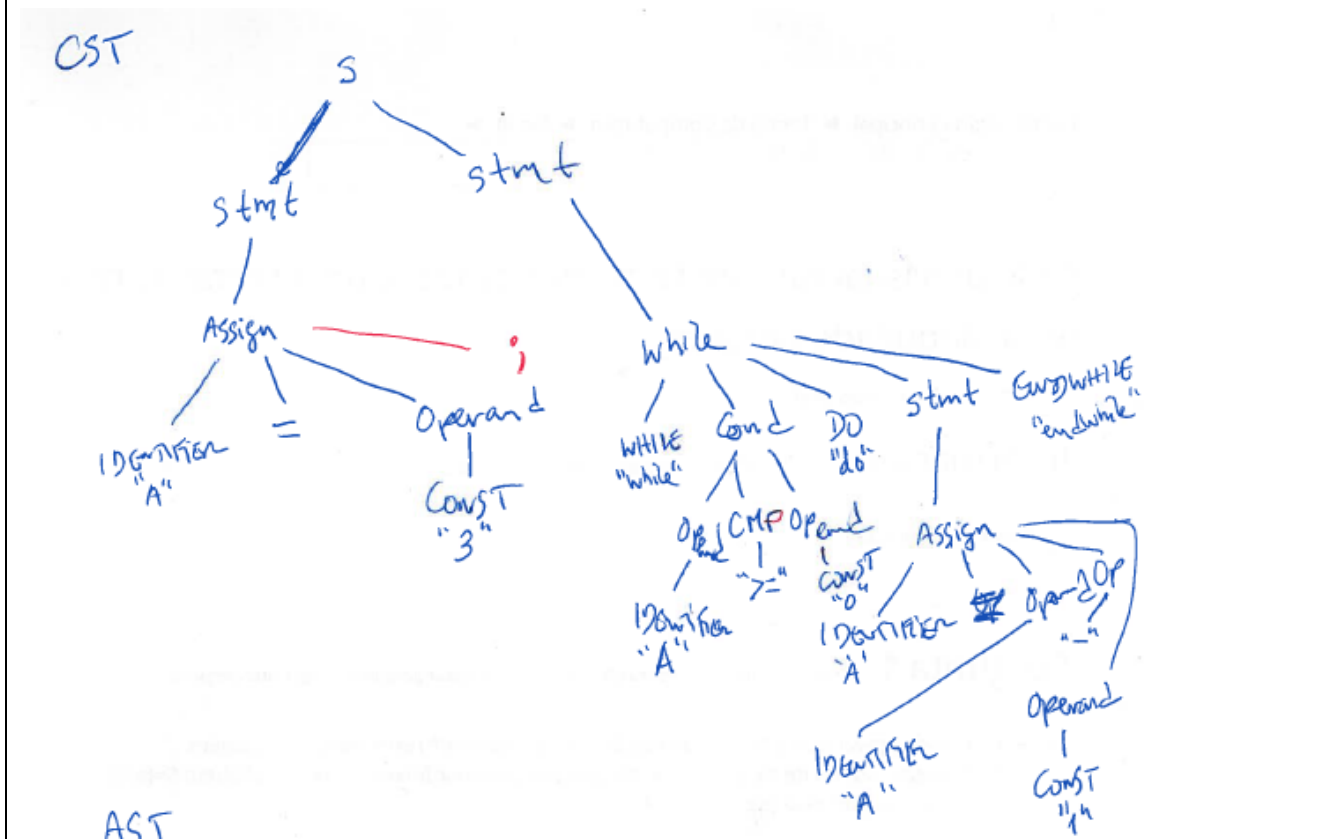 CST
S
stmt
stmt
Assign
;
while
IDENTIFIER
"A"
=
Operand
CONST
"3"
WHILE
"while"
Cond
DO
"do"
stmt
ENDWHILE
"endwhile"
CMP
">="
Operand
CONST
"0"
IDENTIFIER
"A"
Assign
IDENTIFIER
"A"
Operand
OP
"-"
IDENTIFIER
"A"
Operand
CONST
"1"
AST